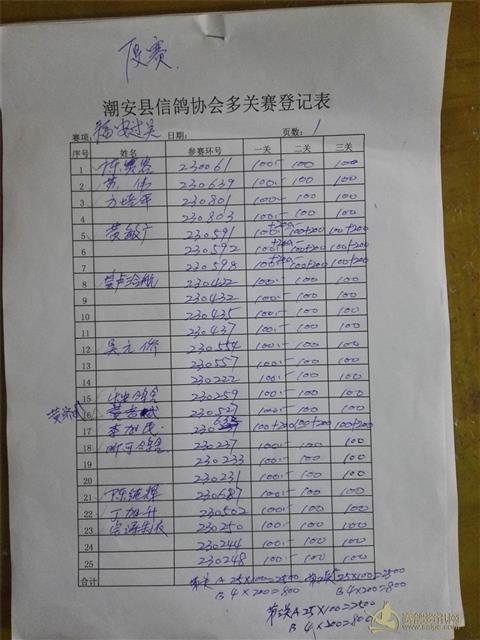 厦赛
潮安县信鸽协会多关赛登记表
赛项: 日期: 页数: 1
序号 姓名 参赛环号 一关 二关 三关
1 230061 100.- 100 100
2 苏伟 230639 100.- 100 100
3 方培军 230801 100.- 100 100
4 230803 100.- 100 100
5 黄敏广 230591 100.-+200.- 100+200 100+200
6 230592 100.-+200.- 100+200 100+200
7 230598 100.-+200.- 100+200 100+200
8 230422 100.- 100 100
9 230432 100.- 100 100
10 230435 100.- 100 100
11 230437 100.- 100 100
12 吴元侨 230554 100.- 100 100
13 230557 100.- 100 100
14 230222 100.- 100 100
15 鸽舍 230259 100.- 100 100
16 230527 100.- 100 100
17 李加 100+200 100+200 100+200
18 鸽舍 230237 100.- 100 100
19 230233 100.- 100 100
20 230231 100.- 100 100
21 陈继辉 230687 100.- 100 100
22 丁加升 230502 100.- 100 100
23 230250 100.- 100 100
24 230244 100.- 100 100
25 230248 100.- 100 100
合计 第一关 A 25×100=2500 第二关 25×100=2500
B 4×200=800 B 4×200=800
第3关 A 25×100=2500
B 4×200=800
赛鸽资讯网
www.saige.com